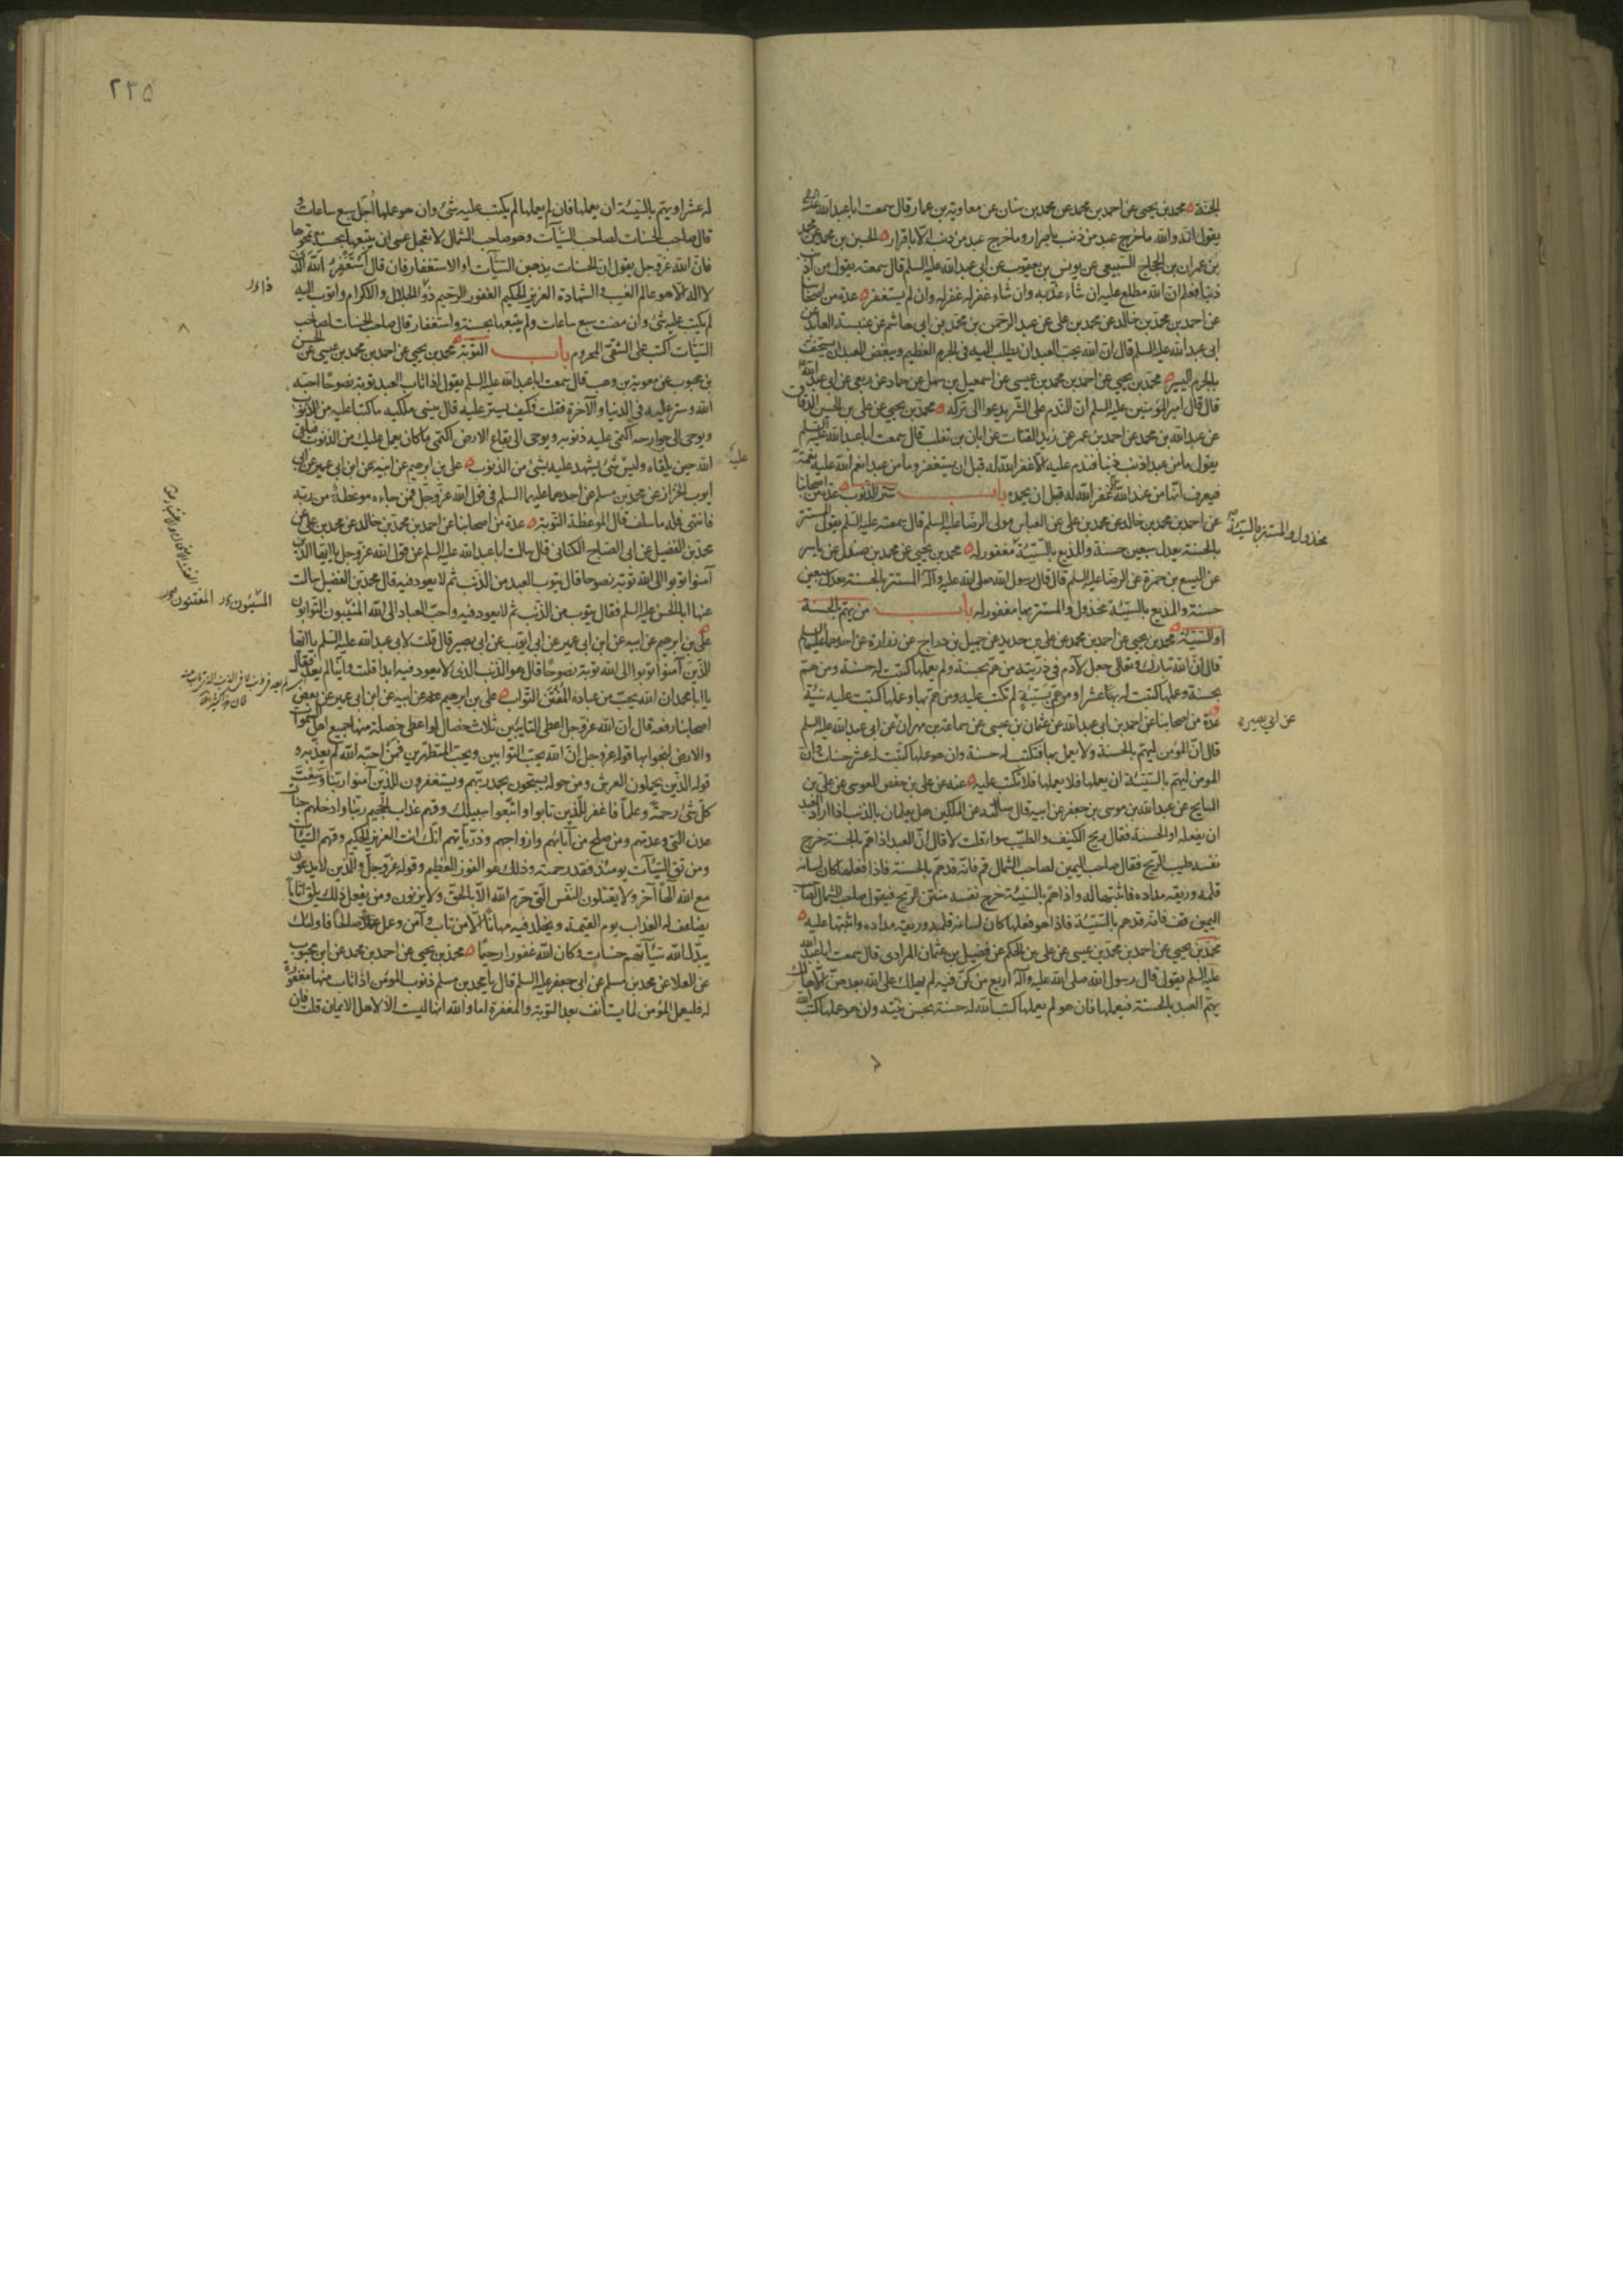 الجنة محمد بن يحيى عن احمد بن محمد عن محمد بن سنان عن معاوية بن عمار قال سمعت ابا عبد الله عليه
يقول انه والله ما خرج عبد من ذنب باصرار وما خرج عبد من ذنب الا باقرار الحسين بن محمد عن محمد
بن عمران بن الحجاج السبيعي عن يونس بن يعقوب عن ابي عبد الله عليه السلم قال سمعته يقول من اذنب
ذنبا فعلم ان الله مطلع عليه ان شاء عذبه وان شاء غفر له غفر له وان لم يستغفر عدة من اصحابنا
عن احمد بن محمد بن خالد عن محمد بن علي عن عبد الرحمن بن محمد بن ابي هاشم عن عنبسة العابد عن
ابي عبد الله عليه السلم قال ان الله يحب العبد ان يطلب اليه في الجرم العظيم ويبغض العبد ان يستخف
بالجرم اليسير محمد بن يحيى عن احمد بن محمد بن عيسى عن اسمعيل بن سهل عن حماد عن ربعي عن ابي عبد الله
قال قال امير المؤمنين عليه السلم ان الندم على الشر يدعوا الى تركه محمد بن يحيى عن علي بن الحسين الدقاق
عن عبد الله بن محمد عن احمد بن عمر عن زيد القتات عن ابان بن تغلب قال سمعت ابا عبد الله عليه السلم
يقول ما من عبد اذنب ذنبا فندم عليه الا غفر الله له قبل ان يستغفر وما من عبد انعم الله عليه نعمة
فيعرف انها من عند الله الا غفر الله له قبل ان يحمده باب ستر الذنوب عدة من اصحابنا
عن احمد بن محمد بن خالد عن محمد بن علي عن العباس مولى الرضا عليه السلم قال سمعته عليه السلم يقول المستتر
بالحسنة يعدل سبعين حسنة والمذيع بالسيئة مغفور له محمد بن يحيى عن محمد بن صندل عن ياسر
مخذول والمستتر بالسيئة
عن اليسع بن حمزة عن الرضا عليه السلم قال قال رسول الله صلى الله عليه وآله المستتر بالحسنة يعدل سبعين
حسنة والمذيع بالسيئة مخذول والمستتر بها مغفور له باب من يهم بالحسنة
او السيئة محمد بن يحيى عن احمد بن محمد عن علي بن حديد عن جميل بن دراج عن زرارة عن احدهما عليهما السلم
قال ان الله تبارك وتعالى جعل لآدم في ذريته من هم بحسنة ولم يعملها كتبت له حسنة ومن هم
بحسنة وعملها كتبت له بها عشرا ومن هم بسيئة لم تكتب عليه ومن هم بها وعملها كتبت عليه سيئة
عدة من اصحابنا عن احمد بن ابي عبد الله عن عثمان بن عيسى عن سماعة بن مهران عن ابي عبد الله عليه السلم
عن ابي بصير
قال ان المؤمن ليهم بالحسنة ولا يعمل بها فتكتب له حسنة وان هو عملها كتبت له عشر حسنات وان
المومن ليهم بالسيئة ان يعملها فلا يعملها فلا تكتب عليه عنه عن علي بن حفص العوسي عن علي بن
السايح عن عبد الله بن موسى بن جعفر عن ابيه قال سألته عن الملكين هل يعلمان بالذنب اذا اراد العبد
ان يفعله او الحسنة فقال ريح الكنيف والطيب سواء قلت لا قال ان العبد اذا هم بالحسنة خرج
نفسه طيب الريح فقال صاحب اليمين لصاحب الشمال قم فانه قد هم بالحسنة فاذا فعلها كان لسانه
قلمه وريقه مداده فاثبتها له واذا هم بالسيئة خرج نفسه منتن الريح فيقول صاحب الشمال لصاحب
اليمين قف فانه قد هم بالسيئة فاذا هو فعلها كان لسانه قلمه وريقه مداده واثبتها عليه
محمد بن يحيى عن احمد بن محمد بن عيسى عن علي بن الحكم عن فضيل بن عثمان المرادي قال سمعت ابا عبد الله
عليه السلم يقول قال رسول الله صلى الله عليه وآله اربع من كن فيه لم يهلك على الله بعدهن الا هالك
يهم العبد بالحسنة فيعملها فان هو لم يعملها كتب الله له حسنة بحسن نيته وان هو عملها كتب الله
٢٣٥
له عشرا ويهم بالسيئة ان يعملها فان لم يعملها لم يكتب عليه شئ وان هو عملها اجل سبع ساعات و
قال صاحب الحسنات لصاحب السيآت وهو صاحب الشمال لا تعجل عسى ان يتبعها بحسنة تمحوها
فان الله عز وجل يقول ان الحسنات يذهبن السيآت او الاستغفار فان قال استغفر الله الذي
لا اله الا هو عالم الغيب والشهادة العزيز الحكيم الغفور الرحيم ذو الجلال والاكرام واتوب اليه
لم يكتب عليه شئ وان مضت سبع ساعات ولم يتبعها بحسنة واستغفار قال صاحب الحسنات لصاحب
السيئات اكتب على الشقي المحروم باب التوبة محمد بن يحيى عن احمد بن محمد بن عيسى عن الحسن
بن محبوب عن معوية بن وهب قال سمعت ابا عبد الله عليه السلم يقول اذا تاب العبد توبة نصوحا احبه
الله وستر عليه في الدنيا والآخرة فقلت وكيف يستر عليه قال ينسي ملكيه ما كتبا عليه من الذنوب
ويوحي الى جوارحه اكتمي عليه ذنوبه ويوحي الى بقاع الارض اكتمي ما كان يعمل عليك من الذنوب فيلقى
الله حين يلقاه وليس شئ يشهد عليه بشئ من الذنوب علي بن ابرهيم عن ابيه عن ابن ابي عمير عن ابي
عليك
ايوب الخزاز عن محمد بن مسلم عن احدهما عليهما السلم في قول الله عز وجل فمن جاءه موعظة من ربه
فانتهى فله ما سلف قال الموعظة التوبة عدة من اصحابنا عن احمد بن محمد بن خالد عن محمد بن علي عن
محمد بن الفضيل عن ابي الصباح الكناني قال سالت ابا عبد الله عليه السلم عن قول الله عز وجل يا ايها الذين
آمنوا توبوا الى الله توبة نصوحا قال يتوب العبد من الذنب ثم لا يعود فيه قال محمد بن الفضيل سالت
عنها ابا الحسن عليه السلم فقال يتوب من الذنب ثم لا يعود فيه واحب العباد الى الله المنيبون التوابون
المفتنون
علي بن ابرهيم عن ابيه عن ابن ابي عمير عن ابي ايوب عن ابي بصير قال قلت لابي عبد الله عليه السلم يا ايها
الذين آمنوا توبوا الى الله توبة نصوحا قال هو الذنب الذي لا يعود فيه ابدا قلت واينا لم يعد فقال
يا ابا محمد ان الله يحب من عباده المفتن التواب علي بن ابرهيم عن ابيه عن ابن ابي عمير عن بعض
اصحابنا رفعه قال ان الله عز وجل اعطى التايبين ثلاث خصال لو اعطى خصلة منها جميع اهل السموات
والارض لنجوا بها قوله عز وجل ان الله يحب التوابين ويحب المتطهرين فمن احبه الله لم يعذبه و
قوله الذين يحملون العرش ومن حوله يسبحون بحمد ربهم ويستغفرون للذين آمنوا ربنا وسعت
كل شئ رحمة وعلما فاغفر للذين تابوا واتبعوا سبيلك وقهم عذاب الجحيم ربنا وادخلهم جنات
عدن التي وعدتهم ومن صلح من آبائهم وازواجهم وذرياتهم انك انت العزيز الحكيم وقهم السيئات
ومن تق السيئات يومئذ فقد رحمته وذلك هو الفوز العظيم وقوله عز وجل والذين لا يدعون
مع الله الها آخر ولا يقتلون النفس التي حرم الله الا بالحق ولا يزنون ومن يفعل ذلك يلق اثاما
يضاعف له العذاب يوم القيمة ويخلد فيه مهانا الا من تاب وآمن وعمل عملا صالحا فاولئك
يبدل الله سيآتهم حسنات وكان الله غفورا رحيما محمد بن يحيى عن احمد بن محمد عن ابن محبوب
عن العلا عن محمد بن مسلم عن ابي جعفر عليه السلم قال يا محمد بن مسلم ذنوب المؤمن اذا تاب منها مغفورة
له فليعمل المؤمن لما يستأنف بعد التوبة والمغفرة اما والله انها ليست الا لاهل الايمان قلت فان